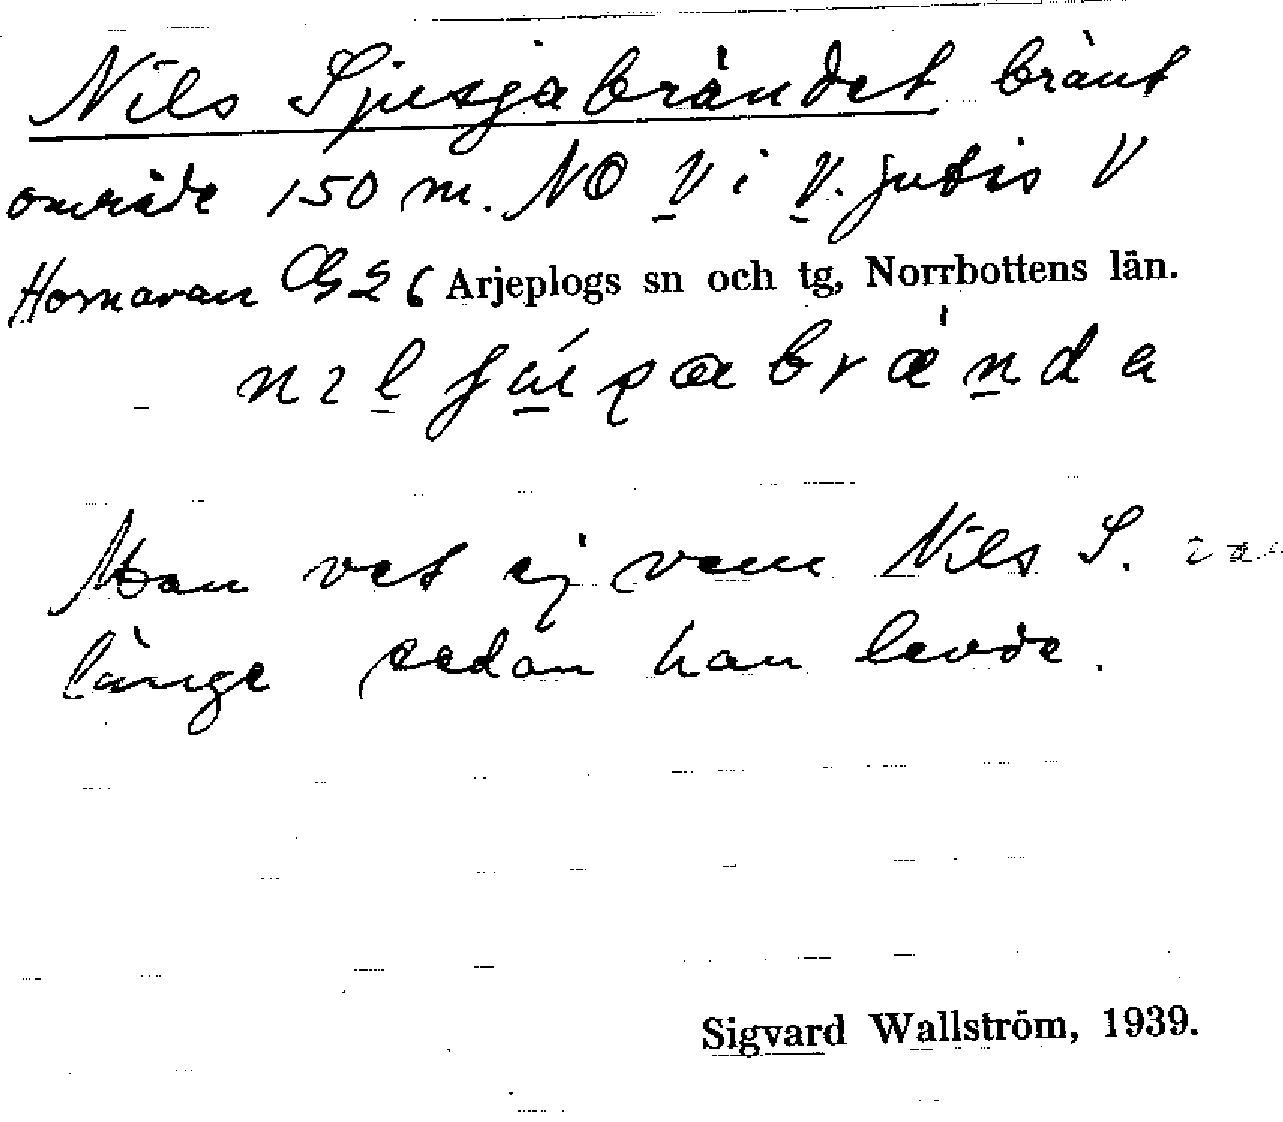 Nils Sjusjabrändet bränt
område 150 m. NO V i V. Jutis V
Hornavan Arjeplogs sn och tg, Norrbottens län.
Man vet ej vem Nils S. var
länge sedan han levde.
Sigvard Wallström, 1939.